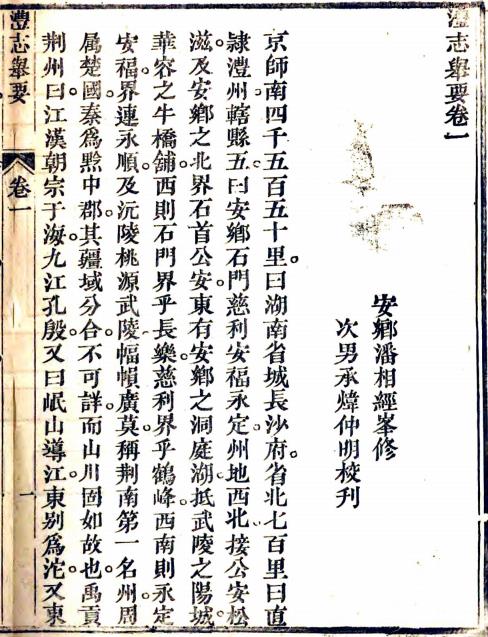 澧志舉要卷一
安鄉潘相經峯修
次男承煒仲明校刊
京師南四千五百五十里曰湖南省城長沙府省北七百里曰直
隸澧州轄縣五曰安鄉石門慈利安福永定州地西北接公安松
滋及安鄉之北界石首公安東有安鄉之洞庭湖抵武陵之陽城
華容之牛橋舖西則石門界乎長樂慈利界乎鶴峰西南則永定
安福界連永順及沅陵桃源武陵幅幀廣莫稱荆南第一名州周
属楚國秦爲黔中郡其疆域分合不可詳而山川固如故也禹貢
荆州曰江漢朝宗于海九江孔殷又曰岷山導江東别爲沱又東
澧志舉要
卷一
一